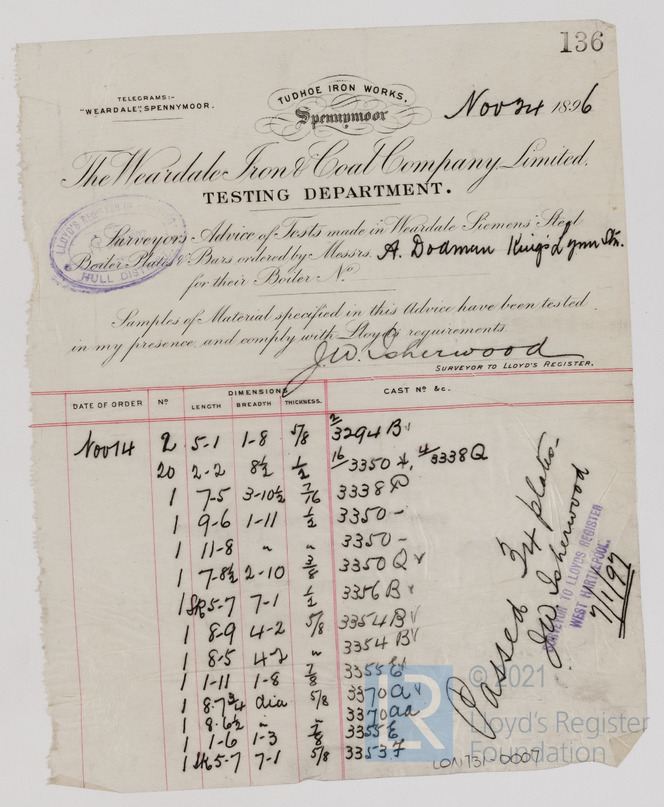 136
TELEGRAMS:-
"WEARDALE", SPENNYMOOR.
TUDHOE IRON WORKS,
Spennymoor
Nov 24 1896
The Weardale Iron & Coal Company, Limited.
TESTING DEPARTMENT.
LLOYD'S REGISTER
HULL DIST
Surveyors Advice of Tests made in Weardale Siemens' Steel
Boiler Plates & Bars ordered by Messrs. A. Dodman King's Lynn Stn.
for their Boiler No
Samples of Material specified in this Advice have been tested
in my presence and comply with Lloyd's requirements.
J.W. Isherwood
SURVEYOR TO LLOYD'S REGISTER.
DATE OF ORDER No DIMENSIONS CAST No &c.
LENGTH BREADTH THICKNESS.
Nov 14 2 5-1 1-8 5/8 2/ 3294 B
20 2-2 8½ ½ 16/ 3350 4/ 3338 Q
1 7-5 3-10½ 7/16 3338
1 9-6 1-11 ½ 3350 -
1 11-8 " " 3350 -
1 7-8½ 2-10 3/8 3350 Q
1 SK 5-7 7-1 ½ 3356 B
1 8-9 4-2 5/8 3354 B
1 8-5 4-2 " 3354 B
1 1-11 1-8 7/8 3355 E
1 8-7¾ dia 5/8 3370 a
1 8-6½ " " 3370 aa
1 1-6 1-3 7/8 3355 E
1 SK 5-7 7-1 5/8 3353 F
Passed 34 plates-
J.W. Isherwood
SURVEYOR TO LLOYD'S REGISTER
WEST HARTLEPOOL.
7/1/97
LR
© 2021
Lloyd's Register
Foundation
LON731-0007